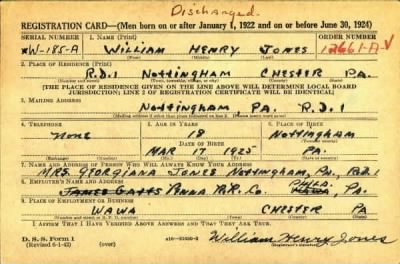 Discharged.
REGISTRATION CARD—(Men born on or after January 1, 1922 and on or before June 30, 1924)
SERIAL NUMBER 1. NAME (Print) ORDER NUMBER
W-185-A WILLIAM HENRY JONES 12661-A-V
(First) (Middle) (Last)
2. PLACE OF RESIDENCE (Print)
R.D.1 NOTTINGHAM CHESTER PA.
(Number and street) (Town, township, village, or city) (County) (State)
[THE PLACE OF RESIDENCE GIVEN ON THE LINE ABOVE WILL DETERMINE LOCAL BOARD
JURISDICTION; LINE 2 OF REGISTRATION CERTIFICATE WILL BE IDENTICAL]
3. MAILING ADDRESS
NOTTINGHAM PA. R.D.1
[Mailing address if other than place indicated on line 2. If same insert word same]
4. TELEPHONE 5. AGE IN YEARS 6. PLACE OF BIRTH
NONE 18 NOTTINGHAM
DATE OF BIRTH
MAR 17 1925 PA.
(Exchange) (Number) (Mo.) (Day) (Yr.) (State or country)
7. NAME AND ADDRESS OF PERSON WHO WILL ALWAYS KNOW YOUR ADDRESS
MRS. GEORGIANA JONES NOTTINGHAM, PA., R.D.1
8. EMPLOYER'S NAME AND ADDRESS
PENNA R.R. CO. PHILA. PA.
9. PLACE OF EMPLOYMENT OR BUSINESS
WAWA CHESTER PA
(Number and street or R. F. D. number) (Town) (County) (State)
I AFFIRM THAT I HAVE VERIFIED ABOVE ANSWERS AND THAT THEY ARE TRUE.
D. S. S. Form 1
(Revised 6-1-42) (over) William Henry Jones
(Registrant's signature)